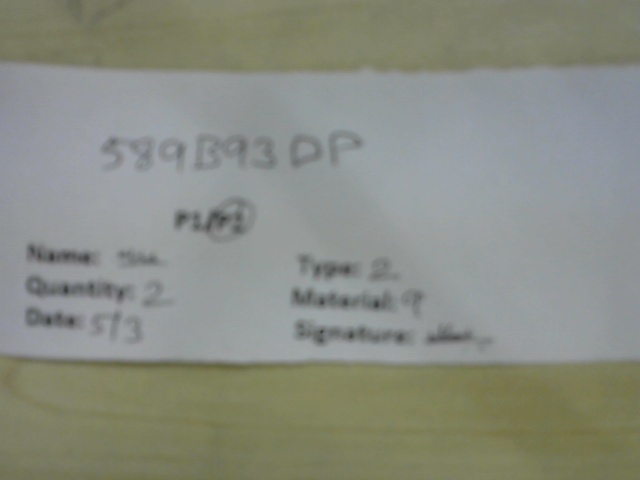 589B93DP
P1/P2
Name: Su
Quantity: 2
Date: 5/3
Type: 2
Material: 9
Signature: